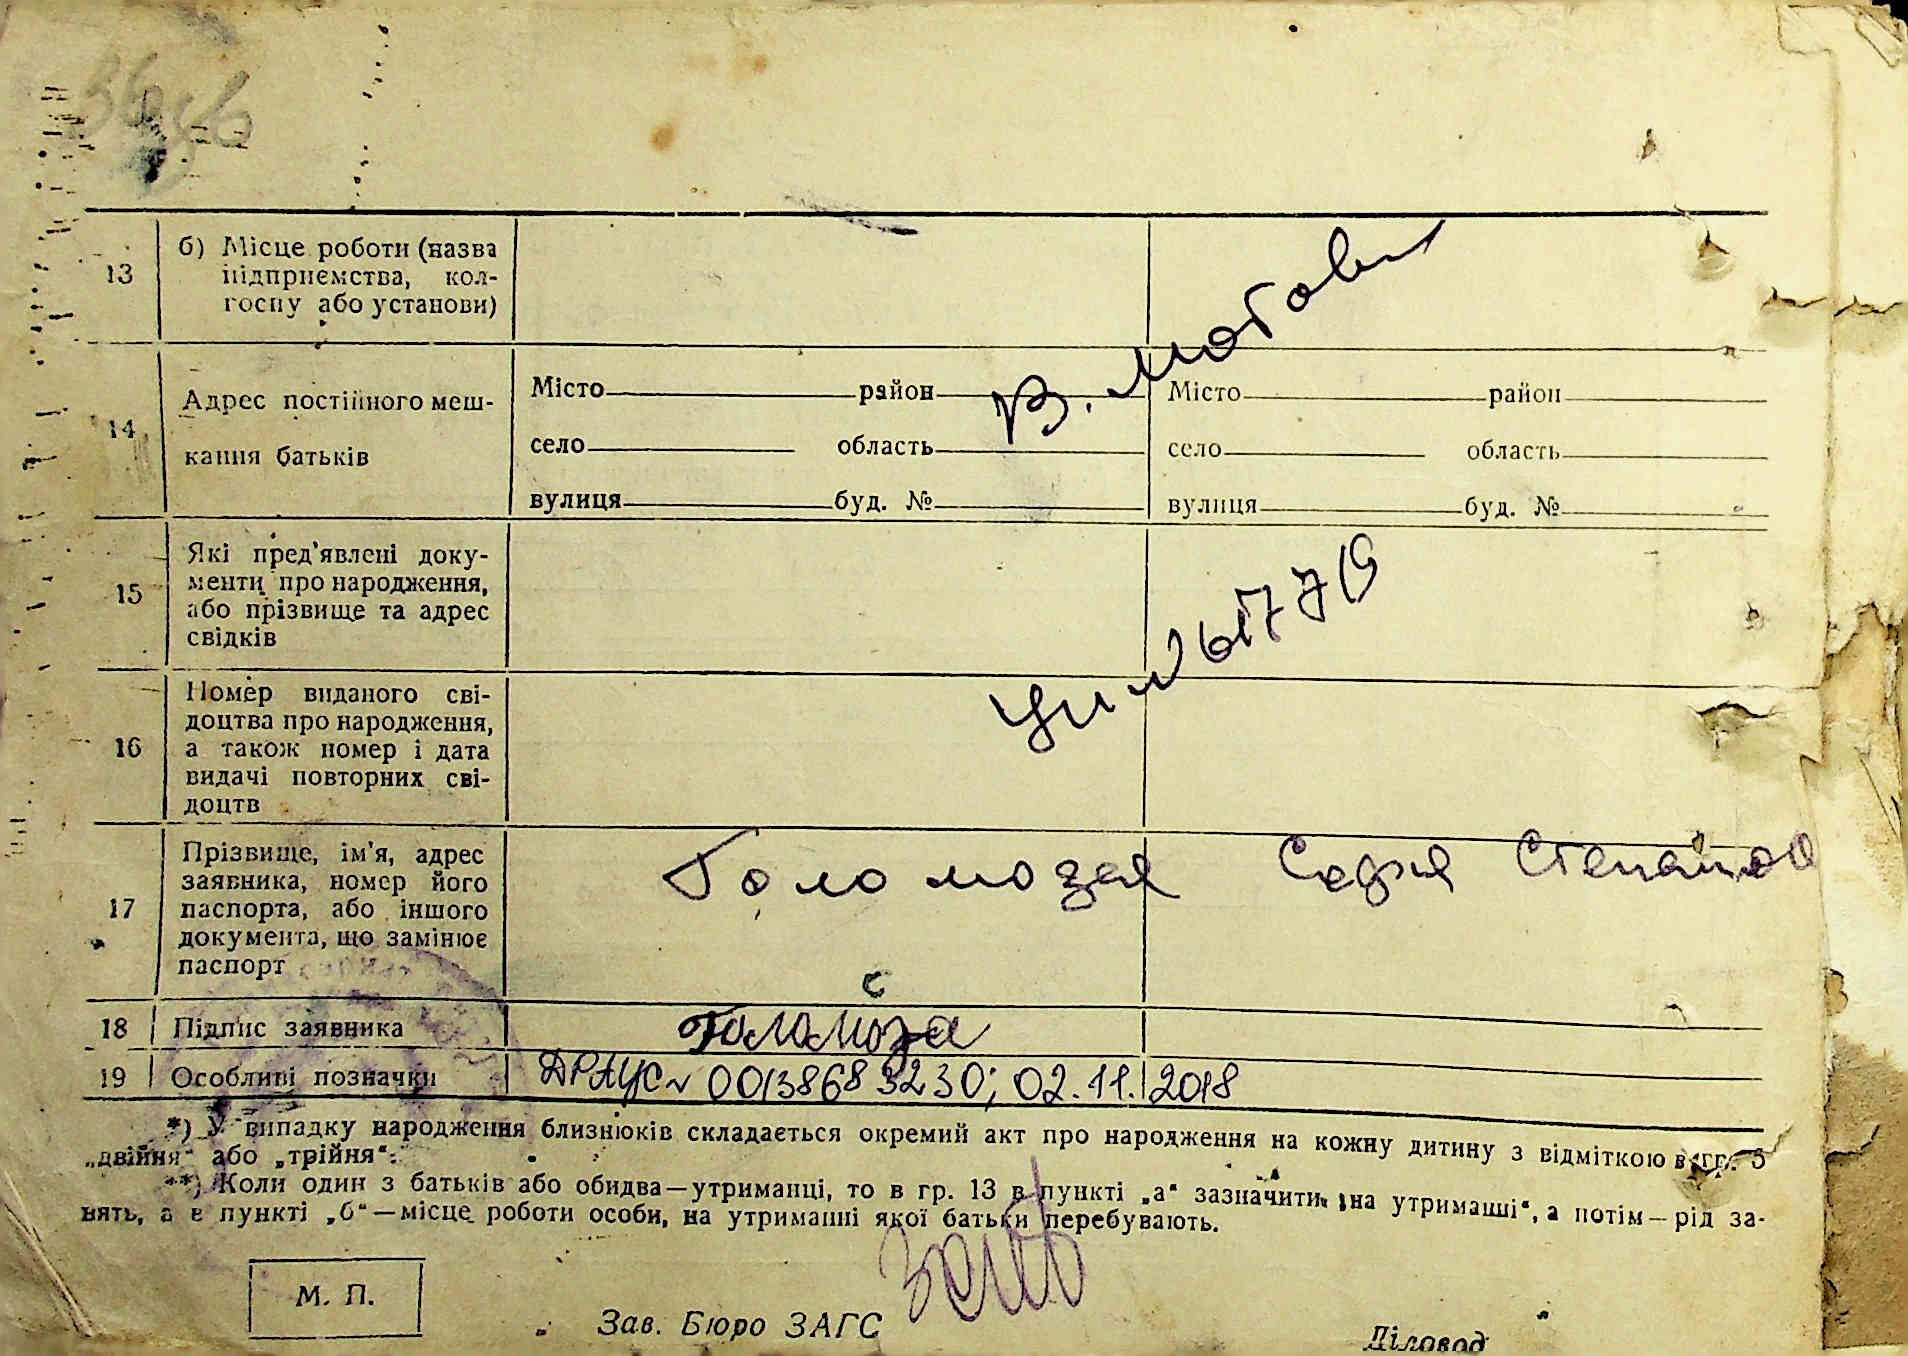 13
б) Місце роботи (назва
підприємства, кол-
госпу або установи)
В. Мотов
14
Адрес постійного меш-
кання батьків
Місто район Місто район
село область село область
вулиця буд. № вулиця буд. №
15
Які пред'явлені доку-
менти про народження,
або прізвище та адрес
свідків
16
Номер виданого сві-
доцтва про народження,
а також номер і дата
видачі повторних сві-
доцтв
17
Прізвище, ім'я, адрес
заявника, номер його
паспорта, або іншого
документа, що замінює
паспорт
Голомозая Софія
18 Підпис заявника Голомоза
19 Особливі позначки ДРАЦС 00138683230; 02.11.2018
*) У випадку народження близнюків складається окремий акт про народження на кожну дитину з відміткою в гр. 5
„двійня" або „трійня".
**) Коли один з батьків або обидва—утриманці, то в гр. 13 в пункті „а" зазначити „на утриманні", а потім—рід за-
нять, а в пункті „б"—місце роботи особи, на утриманні якої батьки перебувають.
М. П.
Зав. Бюро ЗАГС
Діловод